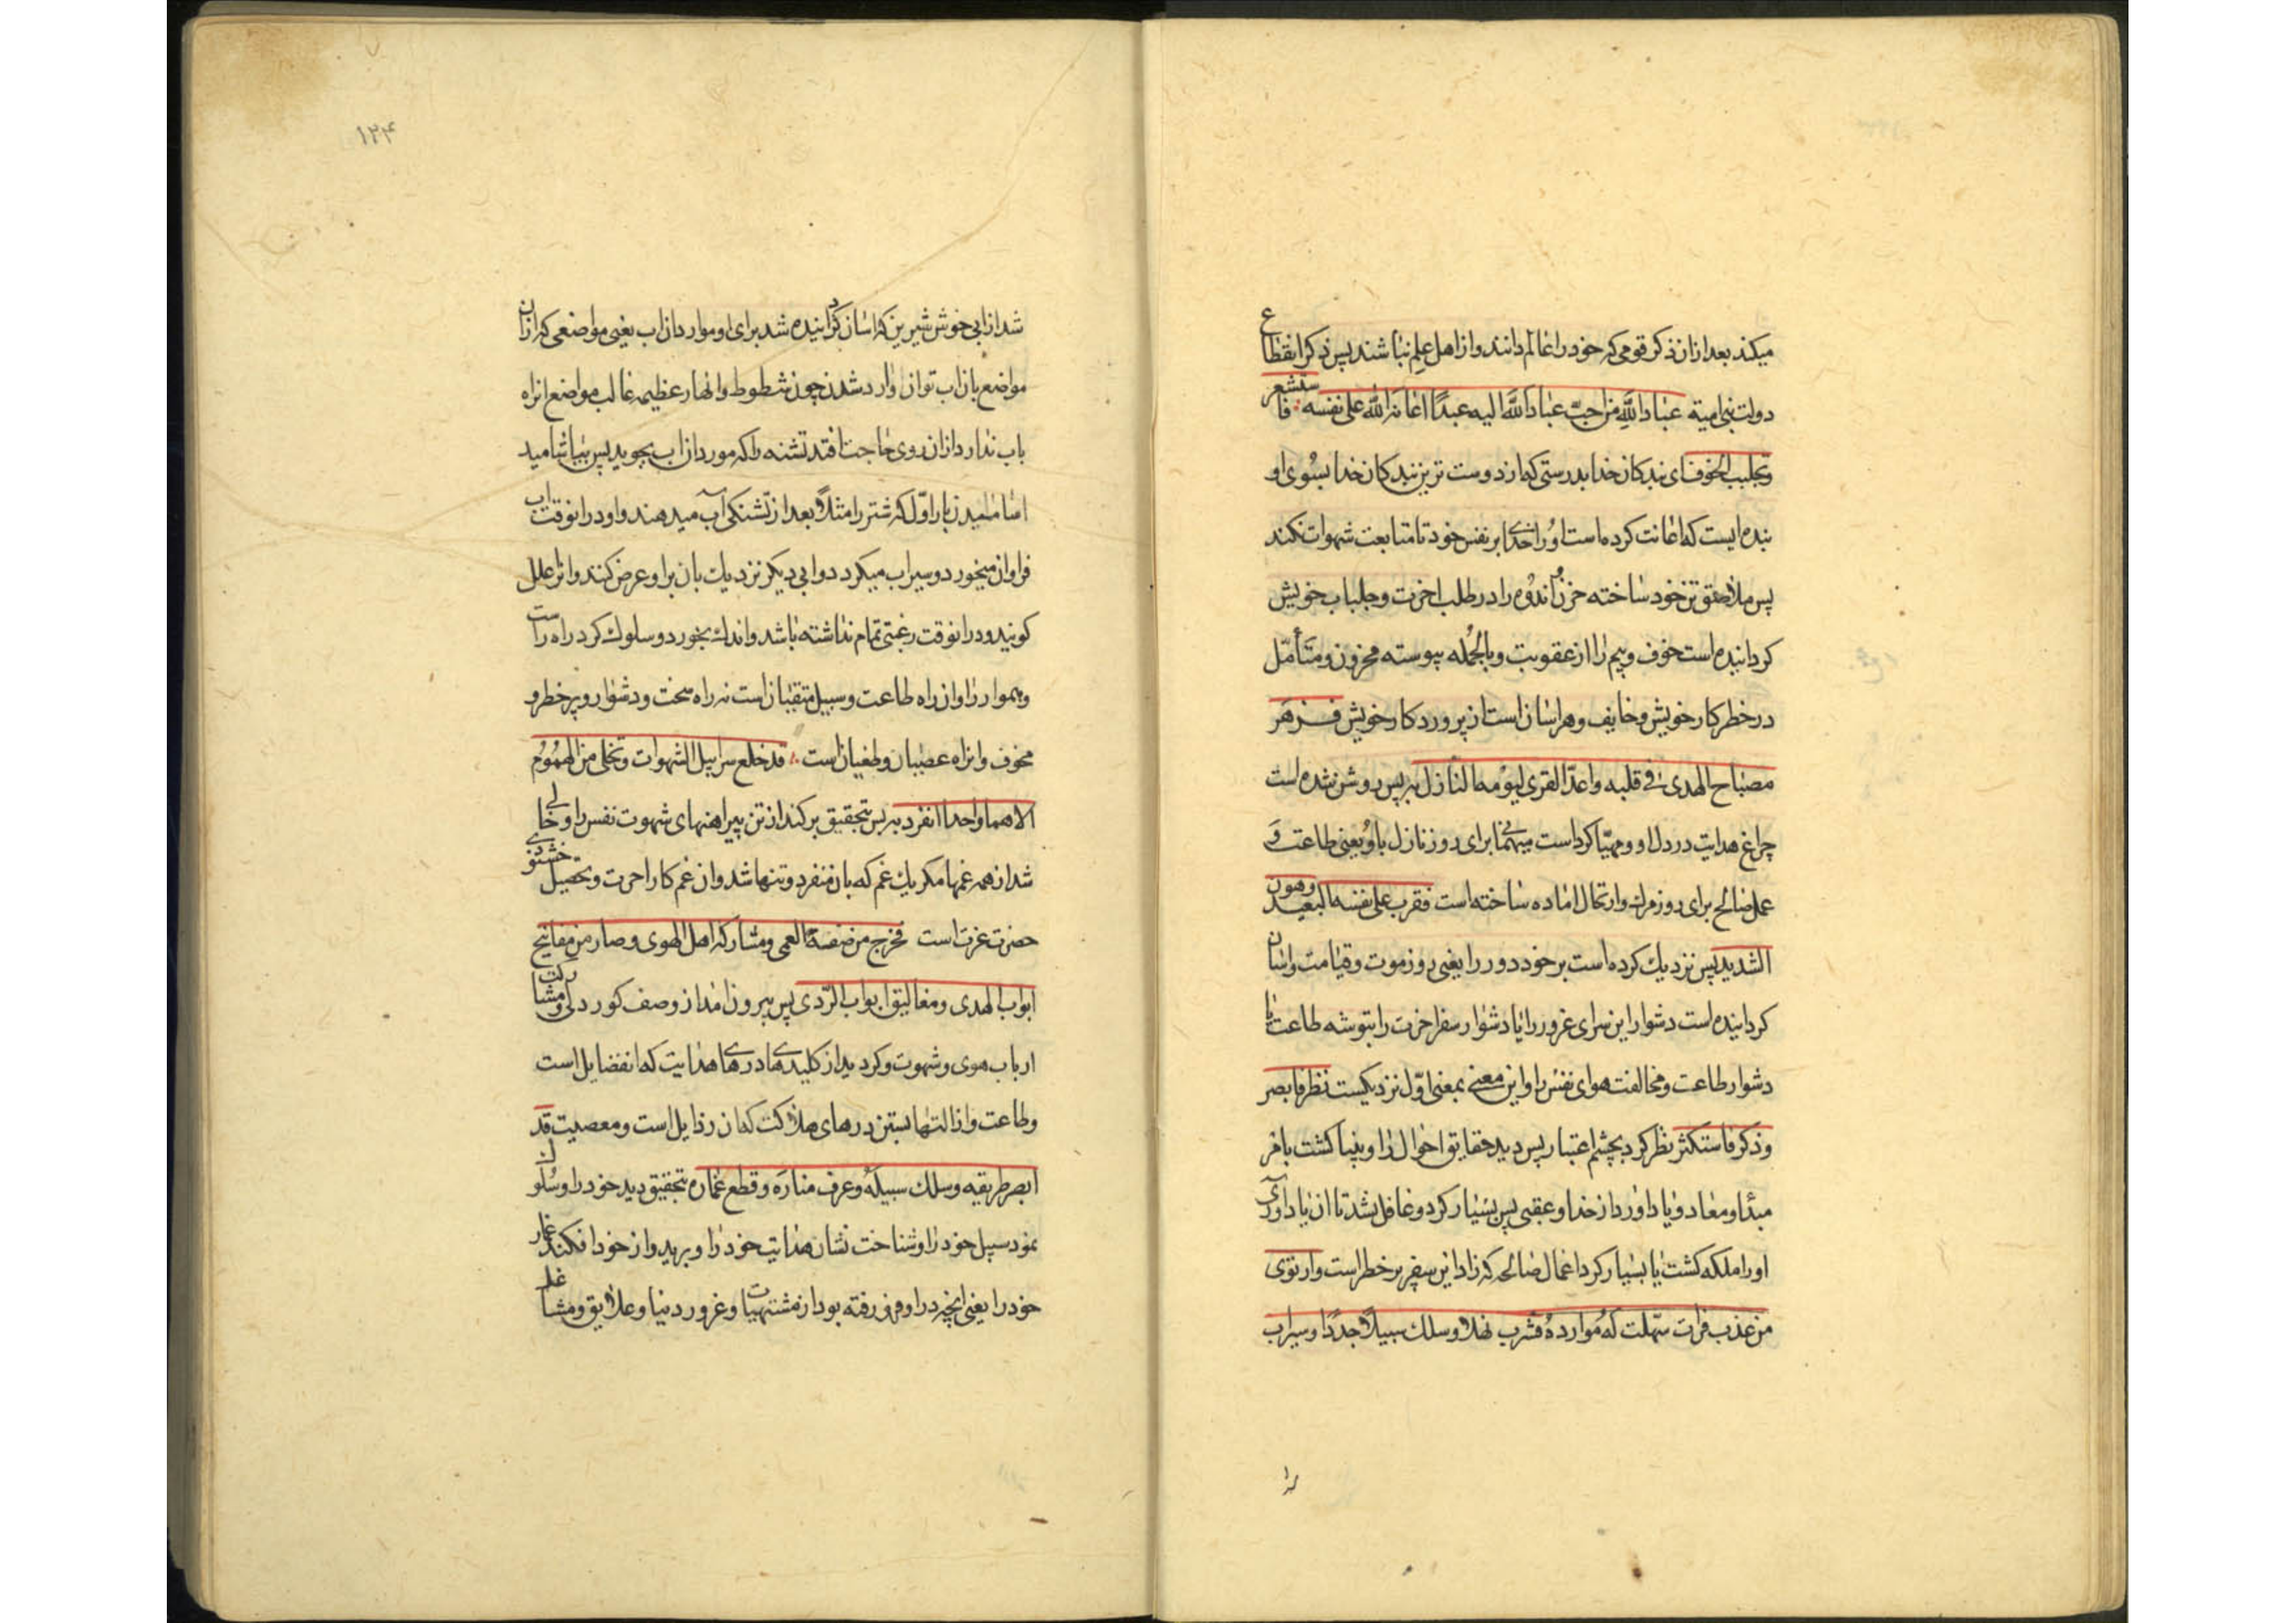 میکند بعد ازان ذکر قومی که خود را عالم دانند و از اهل علم نباشند پس ذکر انقطاع
دولت بنی امیة عباد الله من احبّ عباد الله الیه عبدًا اعانه الله علی نفسه فاستشعر
وتجلبب الخوف ای بندکان خدا بدرستی که از دوست ترین بندکان خدا بسوی او
بنده ایست که اعانت کرده است او را خدای بر نفس خود تا متابعت شهوات نکند
پس ملاصق تن خود ساخته حزن و اندوه را در طلب اخرت و جلباب خویش
کردانیده است خوف و بیم را از عقوبت و بالجمله پیوسته محزون و متأمّل
در خطر کار خویش و خایف و هراسان است از پروردکار خویش فزهر
مصباح الهدی فی قلبه واعدّ القری لیومه النازل به پس روشن شده است
چراغ هدایت در دل او و مهیّا کرد است میهمانی برای روز نازل باو یعنی طاعت و
عمل صالح برای روز مرک و ارتحال اماده ساخته است فقرب علی نفسه البعید وهون
الشدید پس نزدیك کرده است بر خود دور را یعنی روز موت و قیامت و اسان
کردانیده است دشوار این سرای غرور را یا دشوار سفر اخرت را بتوشه طاعت یا
دشوار طاعت و مخالفت هوای نفس را و این معنی بمعنی اوّل نزدیکست نظر فابصر
وذکر فاستکثر نظر کرد بچشم اعتبار پس دید حقایق احوال را و بینا کشت بامر
مبدٔا و معاد و یاد اورد از خدا و عقبی پس بسیار کرد و غافل نشد تا ان یاد اوری
او را ملکه کشت یا بسیار کرد اعمال صالحه که زاد این سفر پر خطر است وارتوی
من عذب فرات سهّلت له موارده فشرب نهلا وسلك سبیلا جددًا و سیراب
را
۱۲۴
شد از ابی خوش شیرین که اسان کردانیده شد برای او موارد ان اب یعنی مواضعی که ازان
مواضع بان اب توان وارد شدن چون شطوط و انهار عظیمه غالب مواضع انراه
باب ندارد ازان روی حاجت افتد تشنه را که مورد ان اب بجوید پس بیاشامید
اشامیدن بار اوّل که شتر را مثلاً بعد از تشنکی آب میدهند و او درانوقت اب
فراوان میخورد و سیراب میکردد و ابی دیکر نزدیك بان براو عرض کنند وانرا علل
کویند و درانوقت رغبتی تمام نداشته باشد و اندك بخورد و سلوك کرد راه راست
و هموار را و ان راه طاعت و سبیل متقیان است نه راه سخت و دشوار و پر خطر و
مخوف و انراه عصیان و طغیان است قد خلع سرابیل الشهوات وتخلی من الهموم
الا هما واحدا انفرد به پس بتحقیق برکند از تن پیراهنهای شهوت نفس را و خالی
شد از همه غمها مکر یك غم که بان منفرد و تنها شد و ان غم کار اخرت و تحصیل خشنودی
حضرت عزت است فخرج من صفة العمی ومشارکة اهل الهوی وصار من مفاتیح
ابواب الهدی ومغالیق ابواب الرّدی پس بیرون امد از وصف کور دلی و مشارکت
ارباب هوی و شهوت و کردید از کلیدهای درهای هدایت که ان فضایل است
و طاعت و از التهای بستن درهای هلاکت که ان رذایل است و معصیت قد
ابصر طریقه وسلك سبیله وعرف مناره وقطع غماره بتحقیق دید خود را و سلوك
نمود سبیل خود را و شناخت نشان هدایت خود را و برید و از خود افکند غمار
خود را یعنی انچه در او فرو رفته بود از مشتهیات و غرور دنیا و علایق و مشاغل